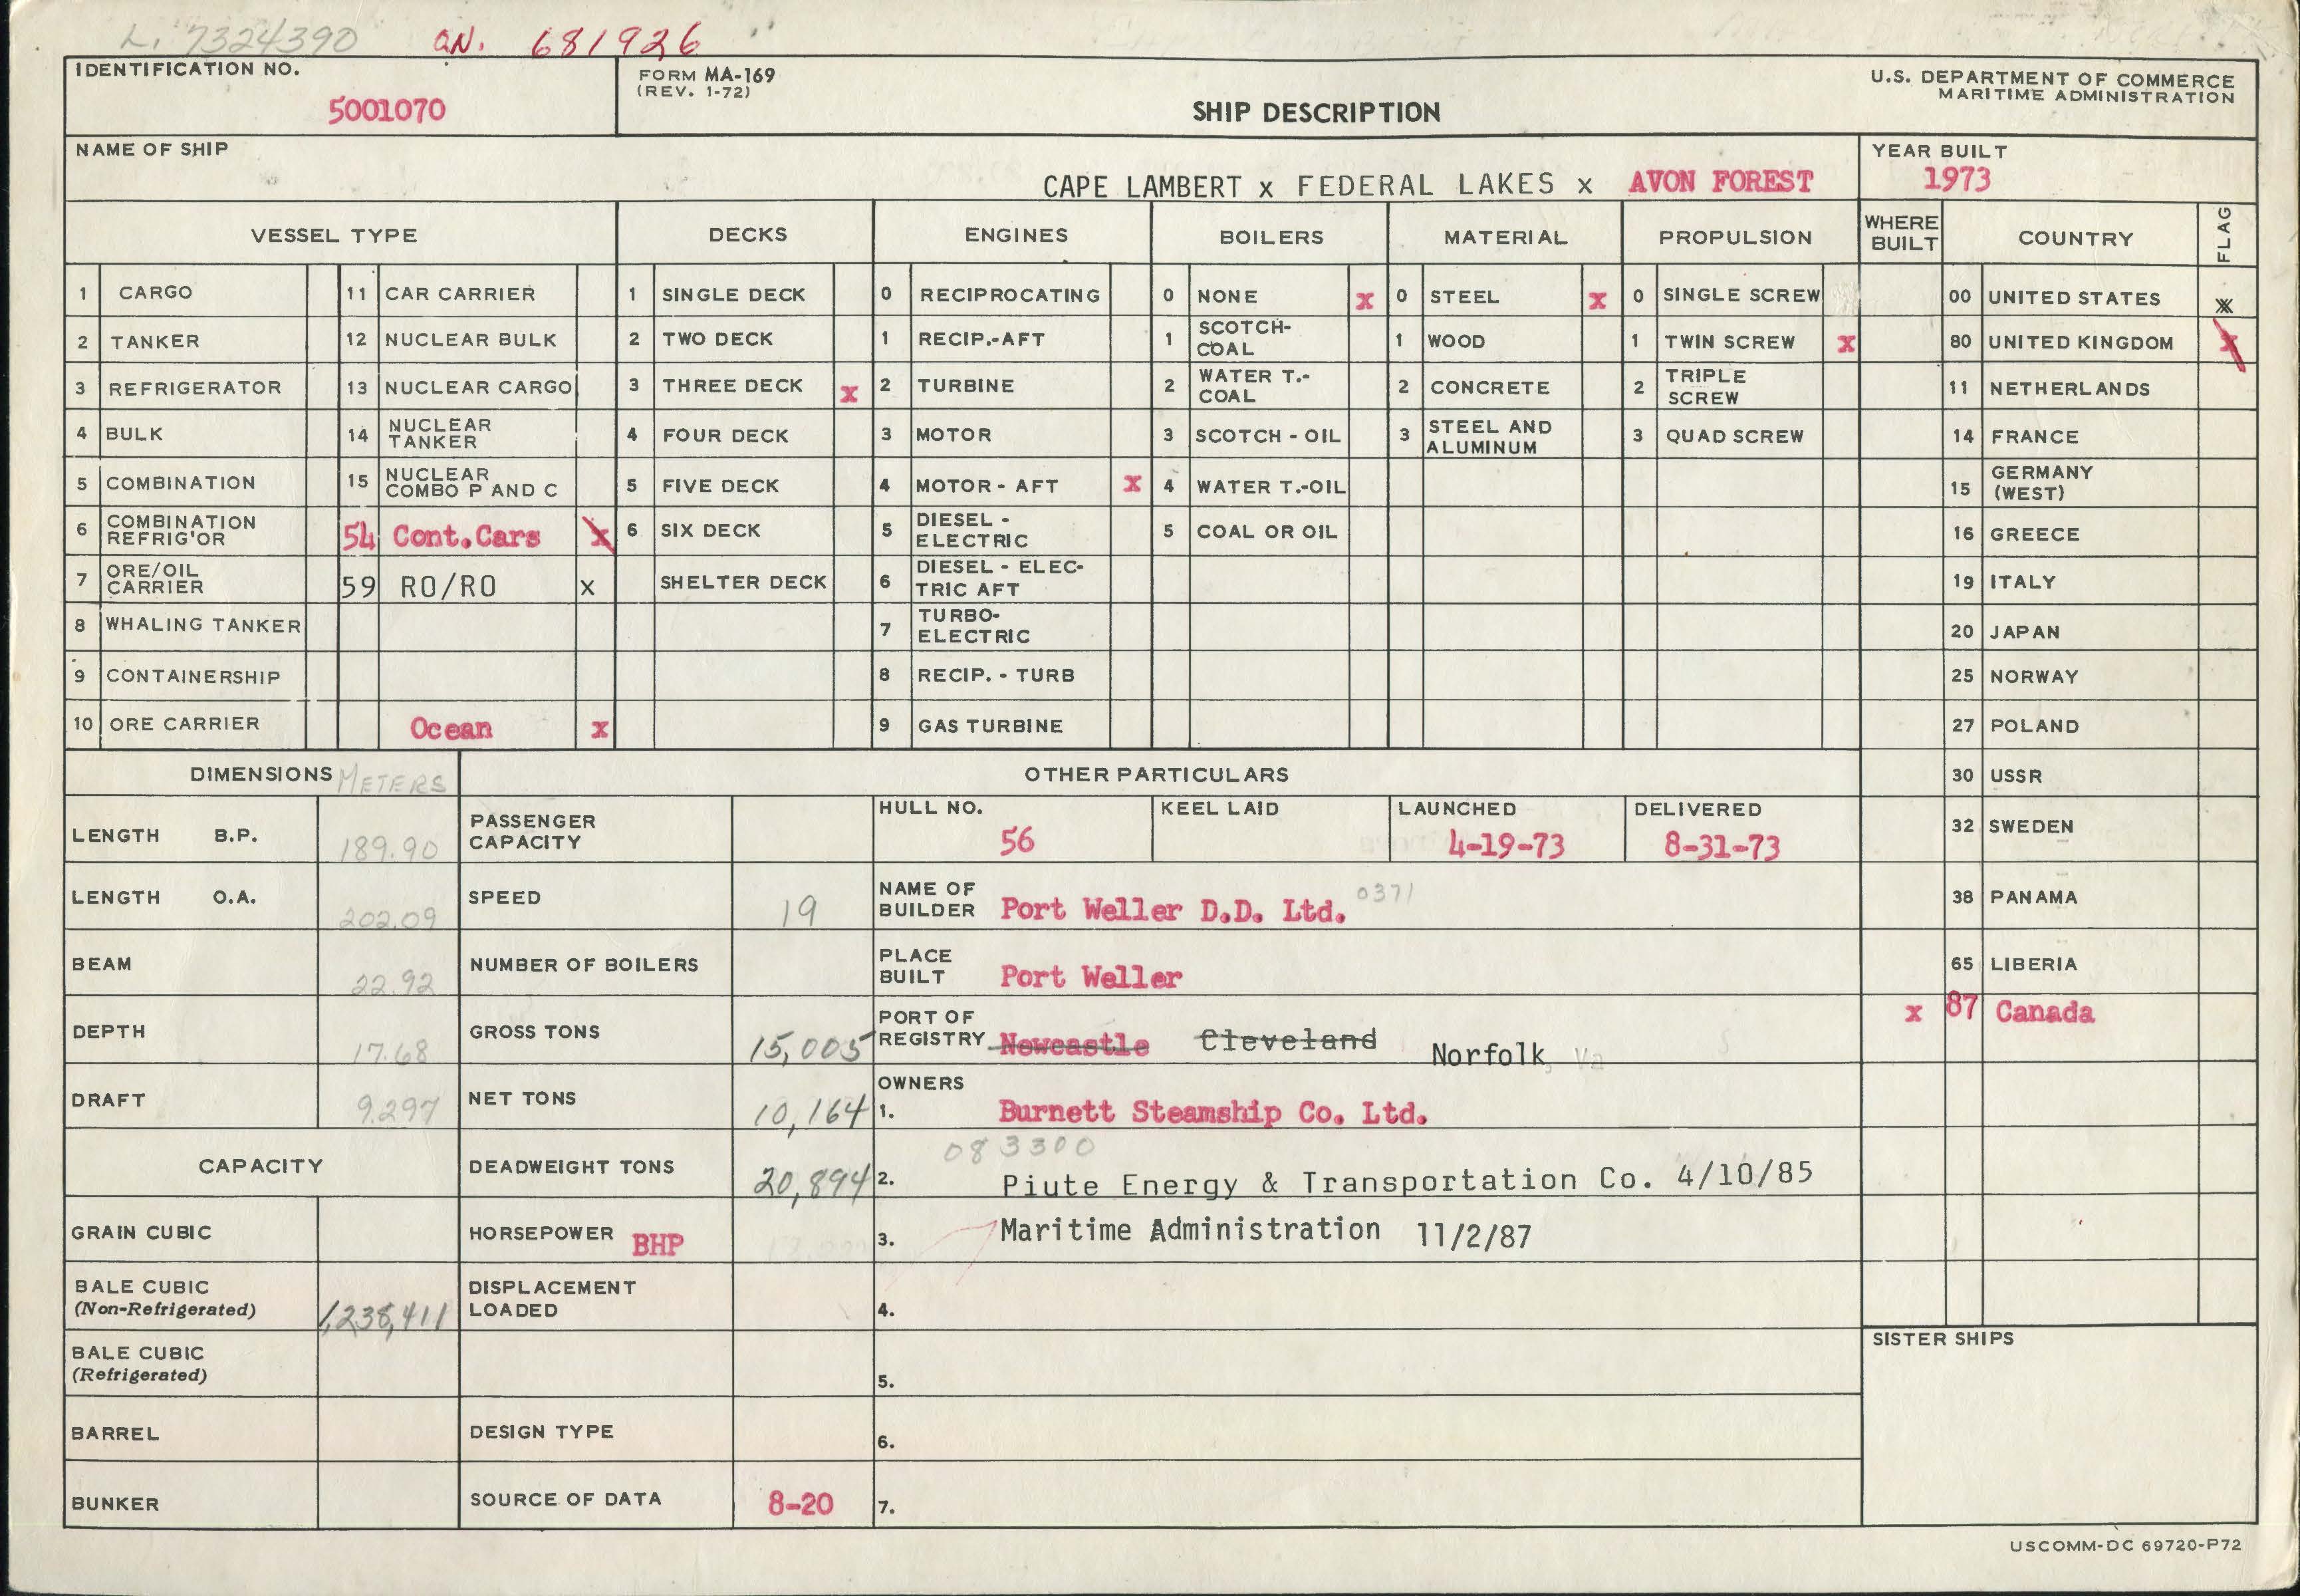 L. 7324390 ON. 681926
IDENTIFICATION NO.
5001070
FORM MA-169
(REV. 1-72)
SHIP DESCRIPTION
U.S. DEPARTMENT OF COMMERCE
MARITIME ADMINISTRATION
NAME OF SHIP
CAPE LAMBERT x FEDERAL LAKES x AVON FOREST
YEAR BUILT
1973
VESSEL TYPE DECKS ENGINES BOILERS MATERIAL PROPULSION WHERE BUILT COUNTRY FLAG
1 CARGO 11 CAR CARRIER 1 SINGLE DECK 0 RECIPROCATING 0 NONE x 0 STEEL x 0 SINGLE SCREW 00 UNITED STATES x
2 TANKER 12 NUCLEAR BULK 2 TWO DECK 1 RECIP.-AFT 1 SCOTCH-COAL 1 WOOD 1 TWIN SCREW x 80 UNITED KINGDOM x
3 REFRIGERATOR 13 NUCLEAR CARGO 3 THREE DECK x 2 TURBINE 2 WATER T.-COAL 2 CONCRETE 2 TRIPLE SCREW 11 NETHERLANDS
4 BULK 14 NUCLEAR TANKER 4 FOUR DECK 3 MOTOR 3 SCOTCH - OIL 3 STEEL AND ALUMINUM 3 QUAD SCREW 14 FRANCE
5 COMBINATION 15 NUCLEAR COMBO P AND C 5 FIVE DECK 4 MOTOR - AFT x 4 WATER T.-OIL 15 GERMANY (WEST)
6 COMBINATION REFRIG'OR 54 Cont.Cars x 6 SIX DECK 5 DIESEL - ELECTRIC 5 COAL OR OIL 16 GREECE
7 ORE/OIL CARRIER 59 RO/RO x SHELTER DECK 6 DIESEL - ELEC-TRIC AFT 19 ITALY
8 WHALING TANKER 7 TURBO-ELECTRIC 20 JAPAN
9 CONTAINERSHIP 8 RECIP. - TURB 25 NORWAY
10 ORE CARRIER Ocean x 9 GAS TURBINE 27 POLAND
DIMENSIONS METERS OTHER PARTICULARS 30 USSR
LENGTH B.P. 189.90 PASSENGER CAPACITY HULL NO. 56 KEEL LAID LAUNCHED 4-19-73 DELIVERED 8-31-73 32 SWEDEN
LENGTH O.A. 202.09 SPEED 19 NAME OF BUILDER Port Weller D.D. Ltd. 0371 38 PANAMA
BEAM 22.92 NUMBER OF BOILERS PLACE BUILT Port Weller 65 LIBERIA
x 87 Canada
DEPTH 17.68 GROSS TONS 15,005 PORT OF REGISTRY Newcastle Cleveland Norfolk, Va
DRAFT 9.297 NET TONS 10,164 OWNERS
1. Burnett Steamship Co. Ltd.
083300
CAPACITY DEADWEIGHT TONS 20,894 2. Piute Energy & Transportation Co. 4/10/85
GRAIN CUBIC HORSEPOWER BHP 3. Maritime Administration 11/2/87
BALE CUBIC (Non-Refrigerated) 1,238,411 DISPLACEMENT LOADED 4.
SISTER SHIPS
BALE CUBIC (Refrigerated) 5.
BARREL DESIGN TYPE 6.
BUNKER SOURCE OF DATA 8-20 7.
USCOMM-DC 69720-P72